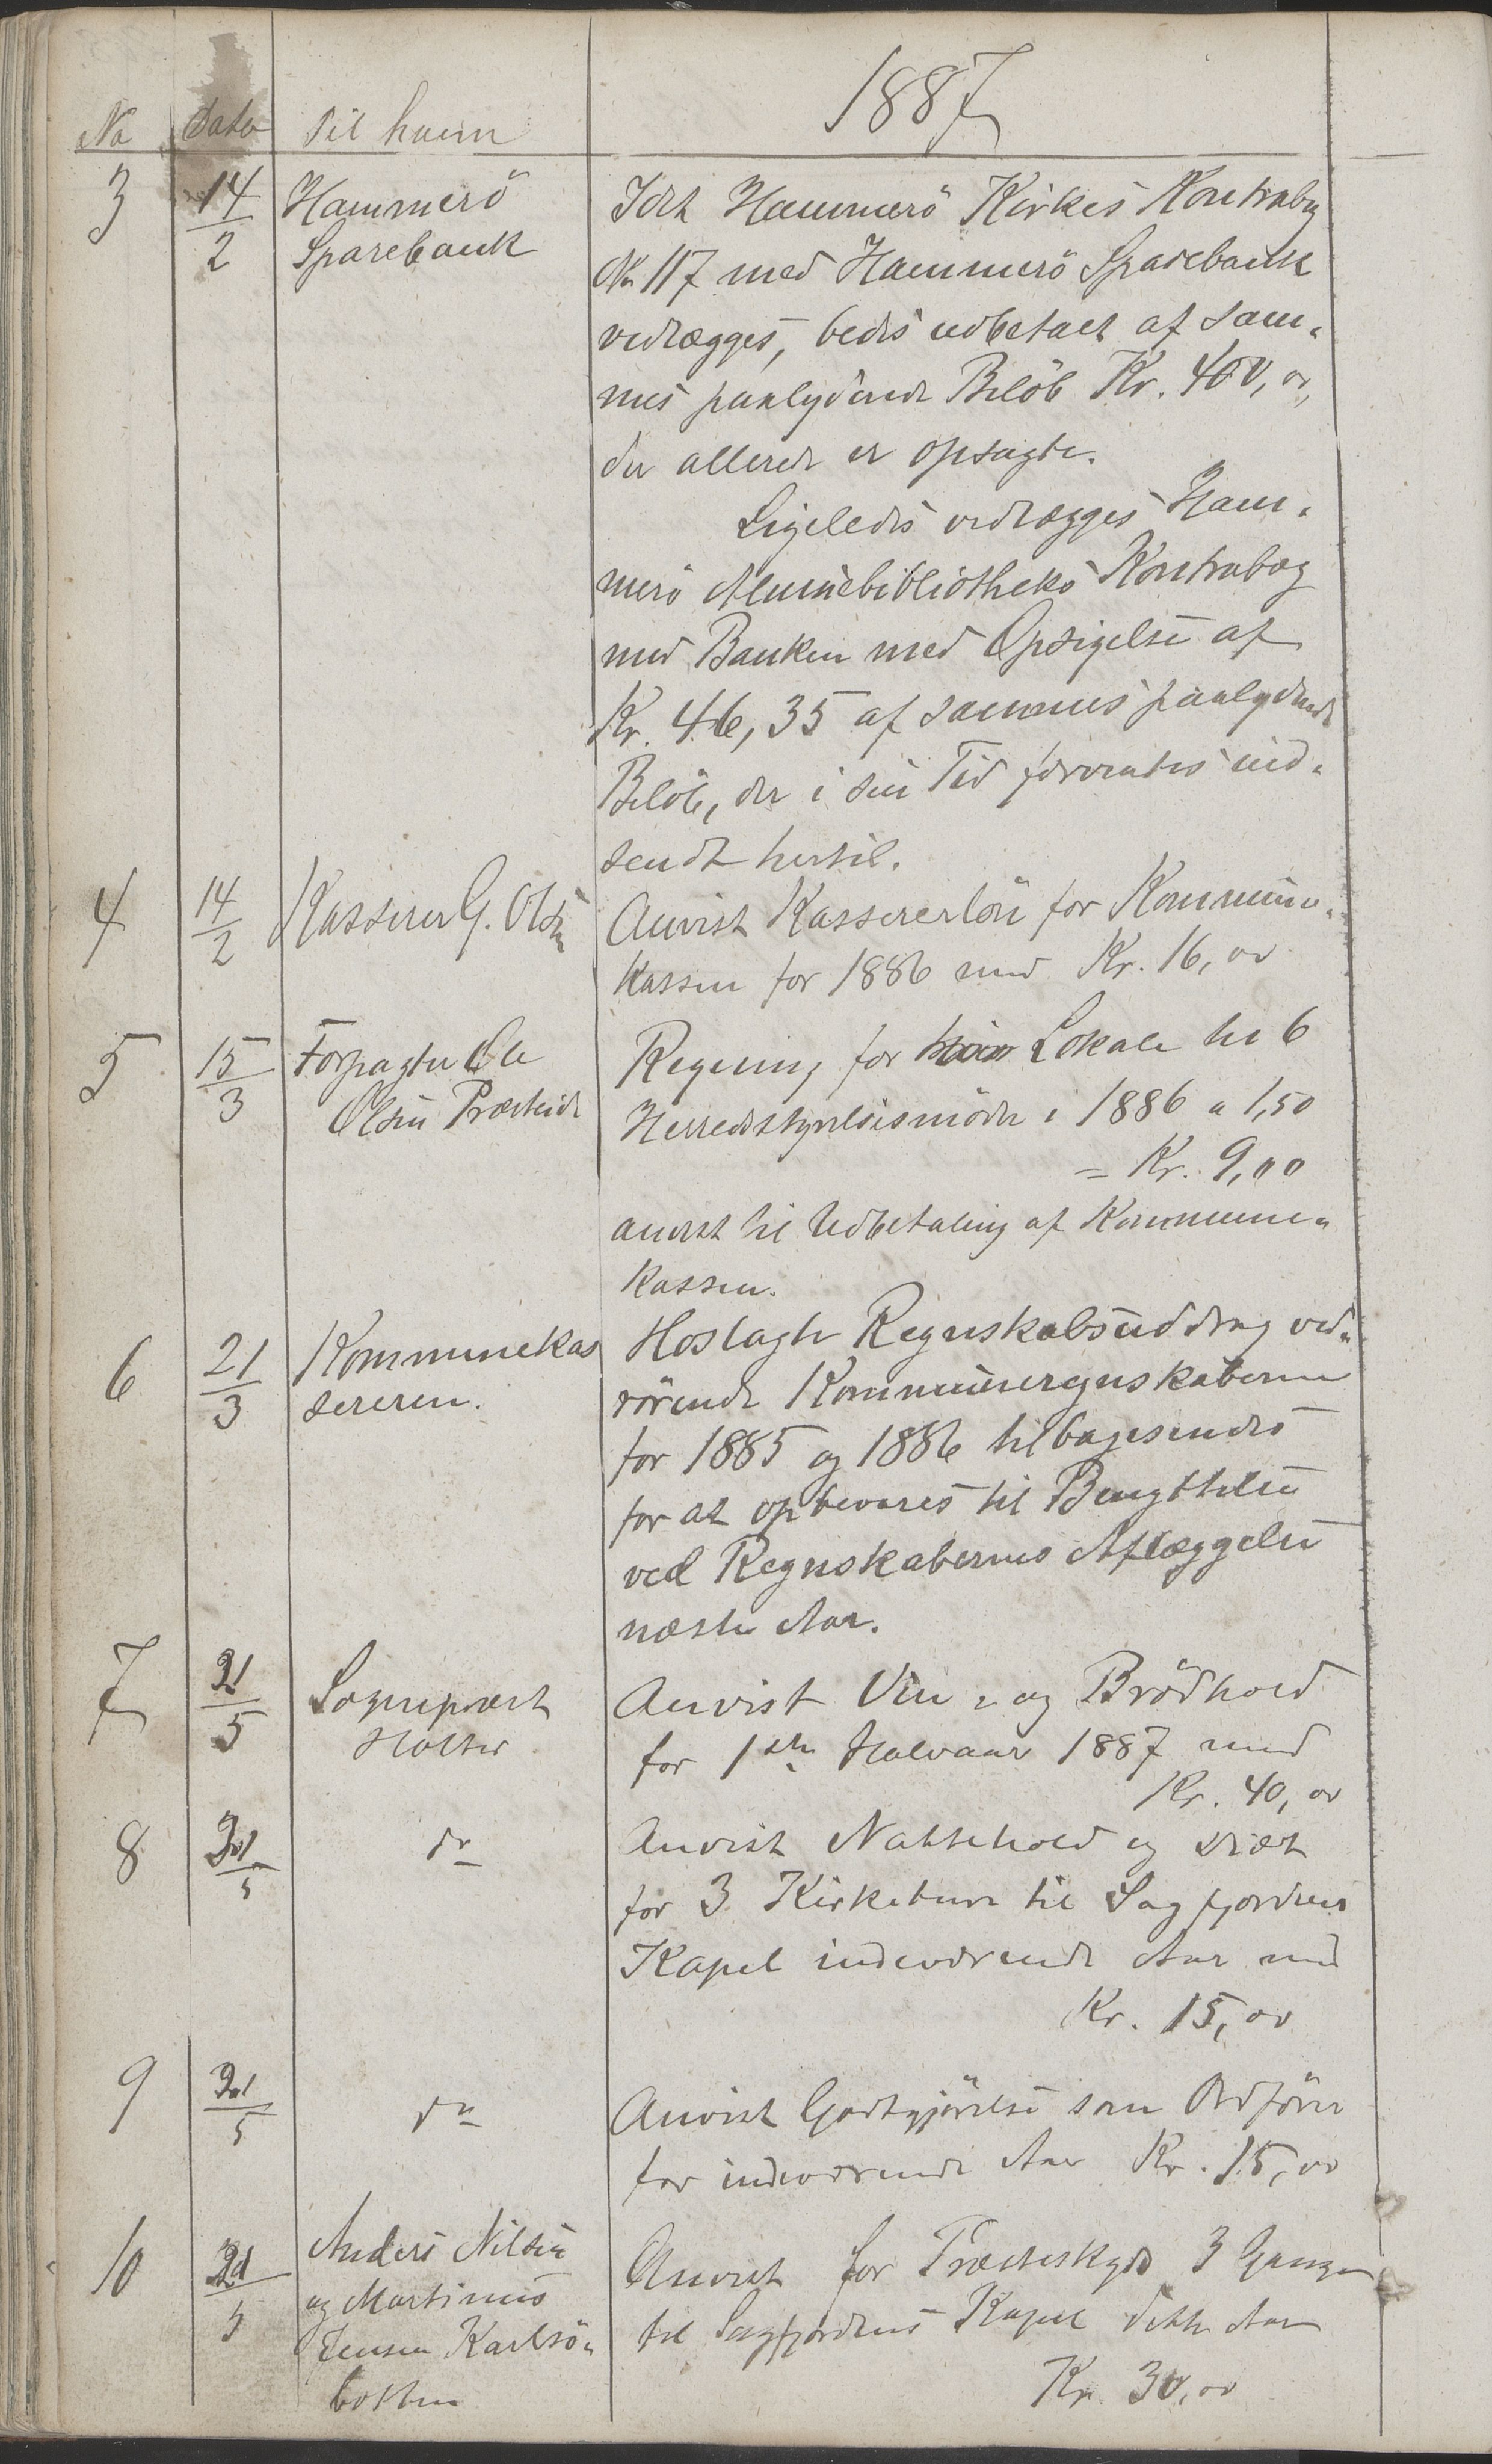 1887
No Dato Til hvem
3 14/2 Hammerö
Sparebank
Idet Hammerö Kirkes Kontrabog
No 117 med Hammerö Sparebank
vedlægges, bedes udbetalt af sam-
mes paalydende Beløb Kr. 400, 00,
der allerede er opsagte.
Ligeledes vedlægges Ham-
merö Almuebibliotheks Kontrabog
med Banken med Opsigelse af
Kr. 46,35 af sammes paalydende
Beløb, der i sin Tid forventes ind-
sendt hertil.
4 14/2 Kasserer G. Olsen
Anvist Kassererlön for Kommune-
kassen for 1886 med Kr. 16,00
5 15/3 Forpagter Ole
Olsen Præsteid
Regning for Lokale til 6
Herredsstyrelsesmöder i 1886 a 1,50
= Kr. 9,00
anvist til Udbetaling af Kommune-
kassen.
6 21/3 Kommunekas
sereren.
Hoslagte Regnskabsuddrag ved-
rörende Kommuneregnskaberne
for 1885 og 1886 tilbagesendes
for at opbevares til Benyttelse
ved Regnskabernes Aflæggelse
næste Aar.
7 21/5 Sogneprest
Holter
Anvist Vin- og Brödhold
for 1ste Halvaar 1887 med
Kr. 40,00
8 21/5 do
Anvist Nattehold og Diæt
for 3 Kirketure til Sagfjordens
Kapel indeværende Aar med
Kr. 15,00
9 21/5 do
Anvist Godtgjörelse som Ordförer
for indeværende Aar Kr. 15,00
10 21/5 Anders Nilsen
og Martinus
Jensen Karlsö-
botten
Anvist for Præsteskyds 3 Gange
til Sagfjordens Kapel dette Aar
Kr. 30,00